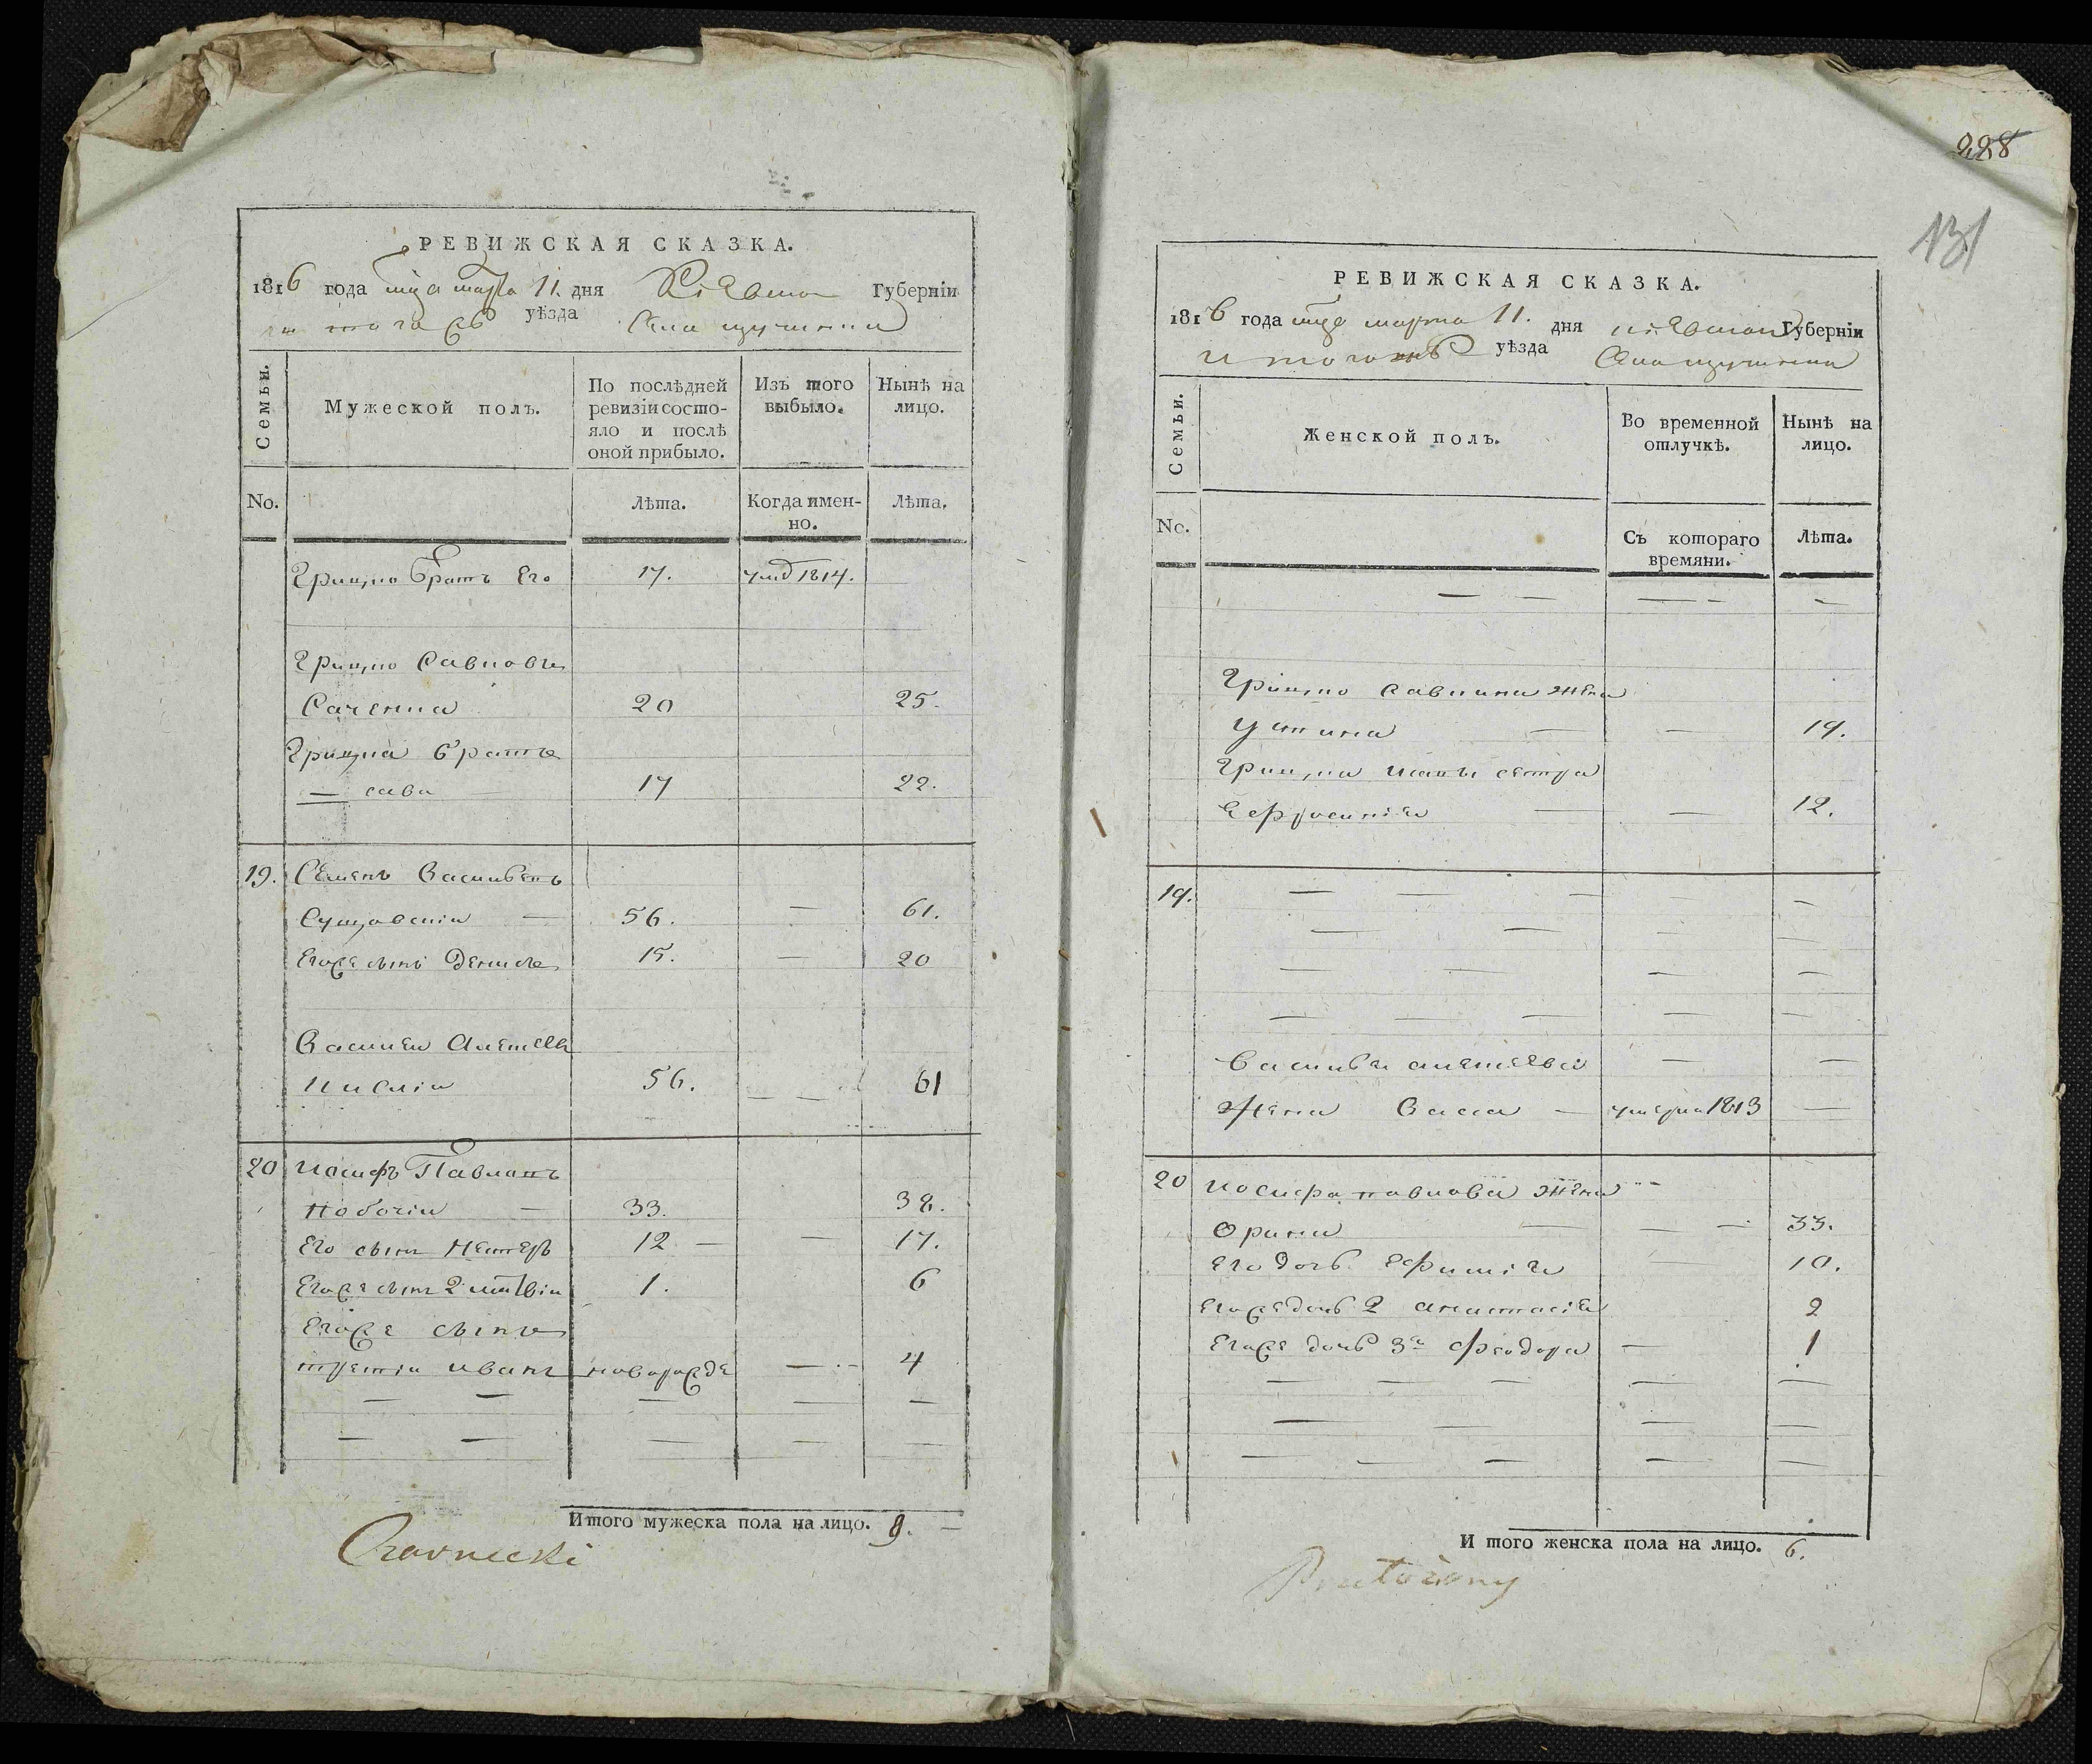 РЕВИЖСКАЯ СКАЗКА.
1816 года мца марта 11. дня Киевской Губерніи
уѣзда Села
Семьи.
Мужеской полъ.
По послѣдней ревизіи состо-
яло и послѣ
оной прибыло.
Изъ того
выбыло.
Нынѣ на
лицо.
No.
Лѣта.
Когда имен-
но.
Лѣта.
Грицко братъ Его 17. 1814.
Грицко Савковъ
20 25.
Грицка братъ
— сава 17 22.
19. Семенъ Василѣевъ
— 56. — 61.
Егоже сынъ Денисъ 15. — 20
Василей Алексѣевъ
56. 61
20 Иосифъ Павловъ
— 33. 38.
Его сынъ Нестеръ 12 — — 17.
Егоже сынъ 2 1. 6
Егоже сынъ
третій иванъ новорожде — 4
Итого мужеска пола на лицо. 9.
Czarnecki
228
131
РЕВИЖСКАЯ СКАЗКА.
1816 года мца марта 11. дня киевской Губерніи
уѣзда Села
Семьи.
Женской полъ.
Во временной
отлучкѣ.
Нынѣ на
лицо.
No.
Съ котораго
времяни.
Лѣта.
Грицко савкина жена
Устина — — 19.
Грицка сестра
Ефросинія — — 12.
19.
Василѣя алексѣева — —
Жена Васса — умерла 1813 —
20 иосифа павлова жена
Орина — — 33.
Его дочь Ефимія 10.
Егоже дочь 2 анастасія 2
Егоже дочь 3я феодора — 1
И того женска пола на лицо. 6.